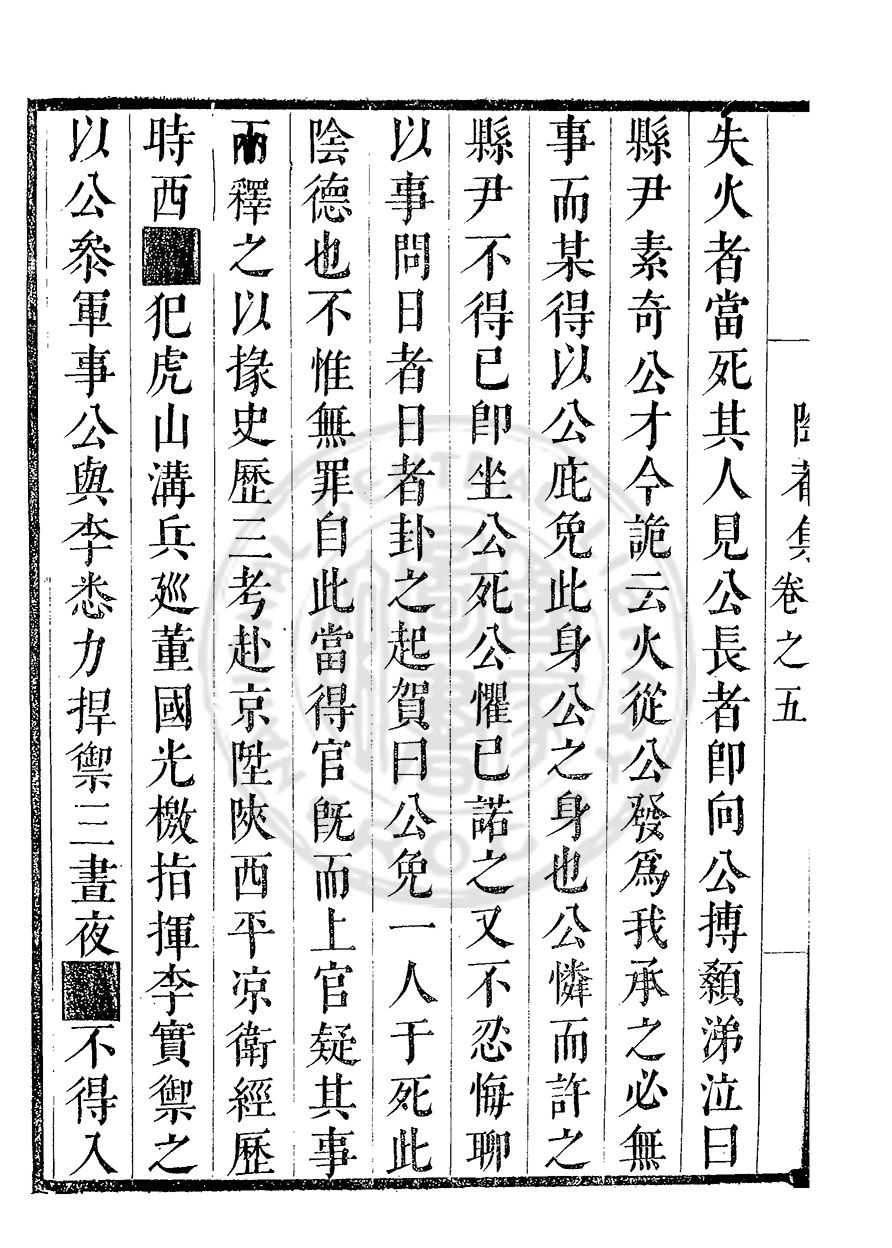 卷之五
失火者當死其人見公長者卽向公搏顙涕泣曰
縣尹素奇公才今詭云火從公發爲我承之必無
事而某得以公庇免此身公之身也公憐而許之
縣尹不得已卽坐公死公懼已諾之又不忍悔聊
以事問日者日者卦之起賀曰公免一人于死此
陰德也不惟無罪自此當得官旣而上官疑其事
兩釋之以掾史歷三考赴京陞陝西平凉衛經歷
時西■犯虎山溝兵廵董國光檄指揮李實禦之
以公叅軍事公與李悉力捍禦三晝夜■不得入